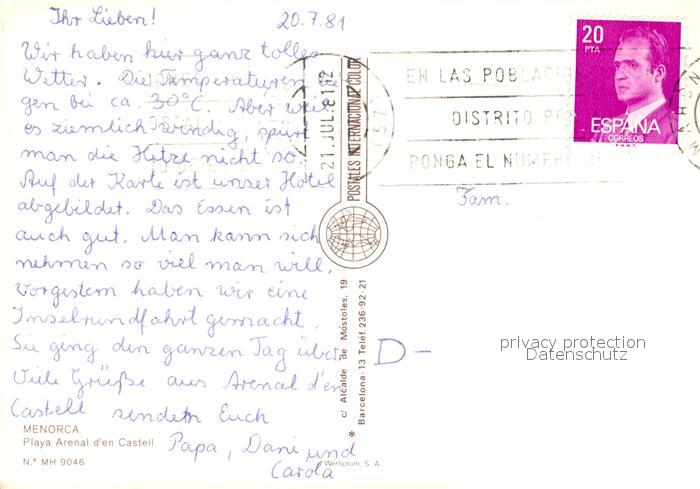 Ihr Lieben!
20.7.81
Wir haben hier ganz tolles
Wetter. Die Temperaturen
gen bei ca. 30°C. Aber weil
es ziemlich windig, spürt
man die Hitze nicht so.
Auf der Karte ist unser Hotel
abgebildet. Das Essen ist
auch gut. Man kann sich
nehmen so viel man will.
Vorgestern haben wir eine
Inselrundfahrt gemacht.
Sie ging den ganzen Tag über.
Viele Grüße aus Arenal d'en
Castell senden Euch
Papa, Dani und
Carola
MENORCA
Playa Arenal d'en Castell
N.° MH 9046
21. JUL. 81
POSTALES INTERNACIONAL COLOR
c/ Alcalde de Móstoles, 19
Barcelona-13 Teléf. 236-92-21
Werticrom, S. A.
EN LAS POBLACI
DISTRITO PO
PONGA EL NUMERO
20
PTA
ESPAÑA
CORREOS
Fam.
D-
privacy protection
Datenschutz